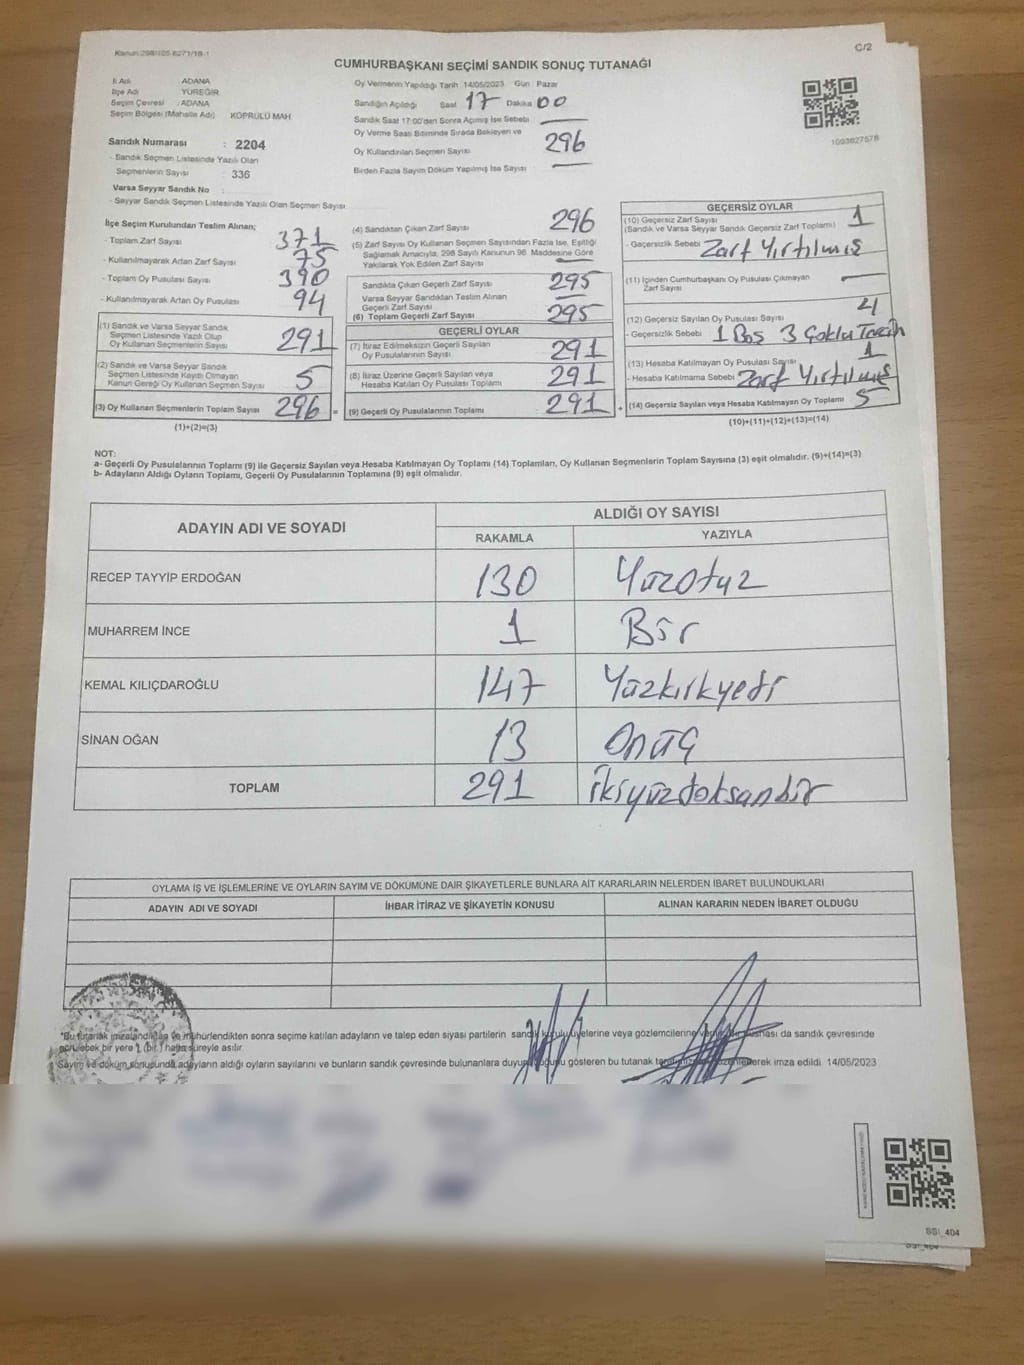 Kanun:298/105-6271/1B-1
C/2
CUMHURBAŞKANI SEÇİMİ SANDIK SONUÇ TUTANAĞI
İl Adı ADANA
İlçe Adı YÜREĞİR
Seçim Çevresi : ADANA
Seçim Bölgesi (Mahalle Adı) KÖPRÜLÜ MAH.
Sandık Numarası : 2204
- Sandık Seçmen Listesinde Yazılı Olan
Seçmenlerin Sayısı : 336
Varsa Seyyar Sandık No :
- Seyyar Sandık Seçmen Listesinde Yazılı Olan Seçmen Sayısı
Oy Vermenin Yapıldığı Tarih 14/05/2023 Gün : Pazar
Sandığın Açıldığı Saat 17 Dakika 00
Sandık Saat 17:00'den Sonra Açılmış İse Sebebi
Oy Verme Saati Bitiminde Sırada Bekleyen ve
Oy Kullandırılan Seçmen Sayısı 296
Birden Fazla Sayım Döküm Yapılmış İse Sayısı
1093827578
İlçe Seçim Kurulundan Teslim Alınan;
- Toplam Zarf Sayısı 371
- Kullanılmayarak Artan Zarf Sayısı 75
- Toplam Oy Pusulası Sayısı 390
- Kullanılmayarak Artan Oy Pusulası 94
(1) Sandık ve Varsa Seyyar Sandık
Seçmen Listesinde Yazılı Olup
Oy Kullanan Seçmenlerin Sayısı 291
(2) Sandık ve Varsa Seyyar Sandık
Seçmen Listesinde Kayıtlı Olmayan
Kanun Gereği Oy Kullanan Seçmen Sayısı 5
(3) Oy Kullanan Seçmenlerin Toplam Sayısı 296 =
(1)+(2)=(3)
(4) Sandıktan Çıkan Zarf Sayısı 296
(5) Zarf Sayısı Oy Kullanan Seçmen Sayısından Fazla İse, Eşitliği
Sağlamak Amacıyla, 298 Sayılı Kanunun 98. Maddesine Göre
Yakılarak Yok Edilen Zarf Sayısı
Sandıkta Çıkan Geçerli Zarf Sayısı 295
Varsa Seyyar Sandıktan Teslim Alınan
Geçerli Zarf Sayısı
(6) Toplam Geçerli Zarf Sayısı 295
GEÇERLİ OYLAR
(7) İtiraz Edilmeksizin Geçerli Sayılan
Oy Pusulalarının Sayısı 291
(8) İtiraz Üzerine Geçerli Sayılan veya
Hesaba Katılan Oy Pusulası Toplamı 291
(9) Geçerli Oy Pusulalarının Toplamı 291 +
GEÇERSİZ OYLAR
(10) Geçersiz Zarf Sayısı 1
(Sandık ve Varsa Seyyar Sandık Geçersiz Zarf Toplamı)
- Geçersizlik Sebebi Zarf Yırtılmış
(11) İçinden Cumhurbaşkanı Oy Pusulası Çıkmayan
Zarf Sayısı
(12) Geçersiz Sayılan Oy Pusulası Sayısı 4
- Geçersizlik Sebebi 1 Boş 3 Çoklu Tercih
(13) Hesaba Katılmayan Oy Pusulası Sayısı 1
- Hesaba Katılmama Sebebi Zarf Yırtılmış
(14) Geçersiz Sayılan veya Hesaba Katılmayan Oy Toplamı 5
(10)+(11)+(12)+(13)=(14)
NOT:
a- Geçerli Oy Pusulalarının Toplamı (9) ile Geçersiz Sayılan veya Hesaba Katılmayan Oy Toplamı (14) Toplamları, Oy Kullanan Seçmenlerin Toplam Sayısına (3) eşit olmalıdır. (9)+(14)=(3)
b- Adayların Aldığı Oyların Toplamı, Geçerli Oy Pusulalarının Toplamına (9) eşit olmalıdır.
ADAYIN ADI VE SOYADI
ALDIĞI OY SAYISI
RAKAMLA YAZIYLA
RECEP TAYYİP ERDOĞAN 130 Yüzotuz
MUHARREM İNCE 1 Bir
KEMAL KILIÇDAROĞLU 147 Yüzkırkyedi
SİNAN OĞAN 13 Onüç
TOPLAM 291 ikiyüzdoksanbir
OYLAMA İŞ VE İŞLEMLERİNE VE OYLARIN SAYIM VE DÖKÜMÜNE DAİR ŞİKAYETLERLE BUNLARA AİT KARARLARIN NELERDEN İBARET BULUNDUKLARI
ADAYIN ADI VE SOYADI İHBAR İTİRAZ VE ŞİKAYETİN KONUSU ALINAN KARARIN NEDEN İBARET OLDUĞU
*Bu tutanak imzalandıktan ve mühürlendikten sonra seçime katılan adayların ve talep eden siyasi partilerin sandık kurulu üyelerine veya gözlemcilerine verilir. Bir nüshası da sandık çevresinde
görülebek bir yere 1 (bir) hafta süreyle asılır.
Sayım ve döküm sonucunda adayların aldığı oyların sayılarını ve bunların sandık çevresinde bulunanlara duyurulduğunu gösteren bu tutanak düzenlenerek imza edildi. 14/05/2023
SSI_404